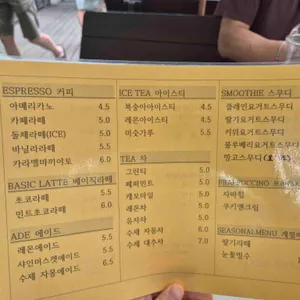 ESPRESSO 커피
아메리카노 4.5
카페라떼 5.0
돌체라떼(ICE) 5.0
바닐라라떼 5.5
카라멜마끼아또 6.0
BASIC LATTE 베이직라떼
초코라떼 5.5
민트초코라떼 6.0
ADE 에이드
레몬에이드 5.5
샤인머스켓에이드 5.5
수제 자몽에이드 6.5
ICE TEA 아이스티
복숭아아이스티 4.5
레몬아이스티 4.5
미숫가루 5.5
TEA 차
그린티 5.0
페퍼민트 5.0
캐모마일 5.0
레몬차 5.0
유자차 5.0
수제 자몽차 6.0
수제 대추차 7.0
SMOOTHIE 스무디
플레인요거트스무디
딸기요거트스무디
키위요거트스무디
블루베리요거트스무디
망고스무디
FRAPPUCCINO
자바칩
쿠키앤크림
SEASONALMENU
딸기라떼
눈꽃빙수